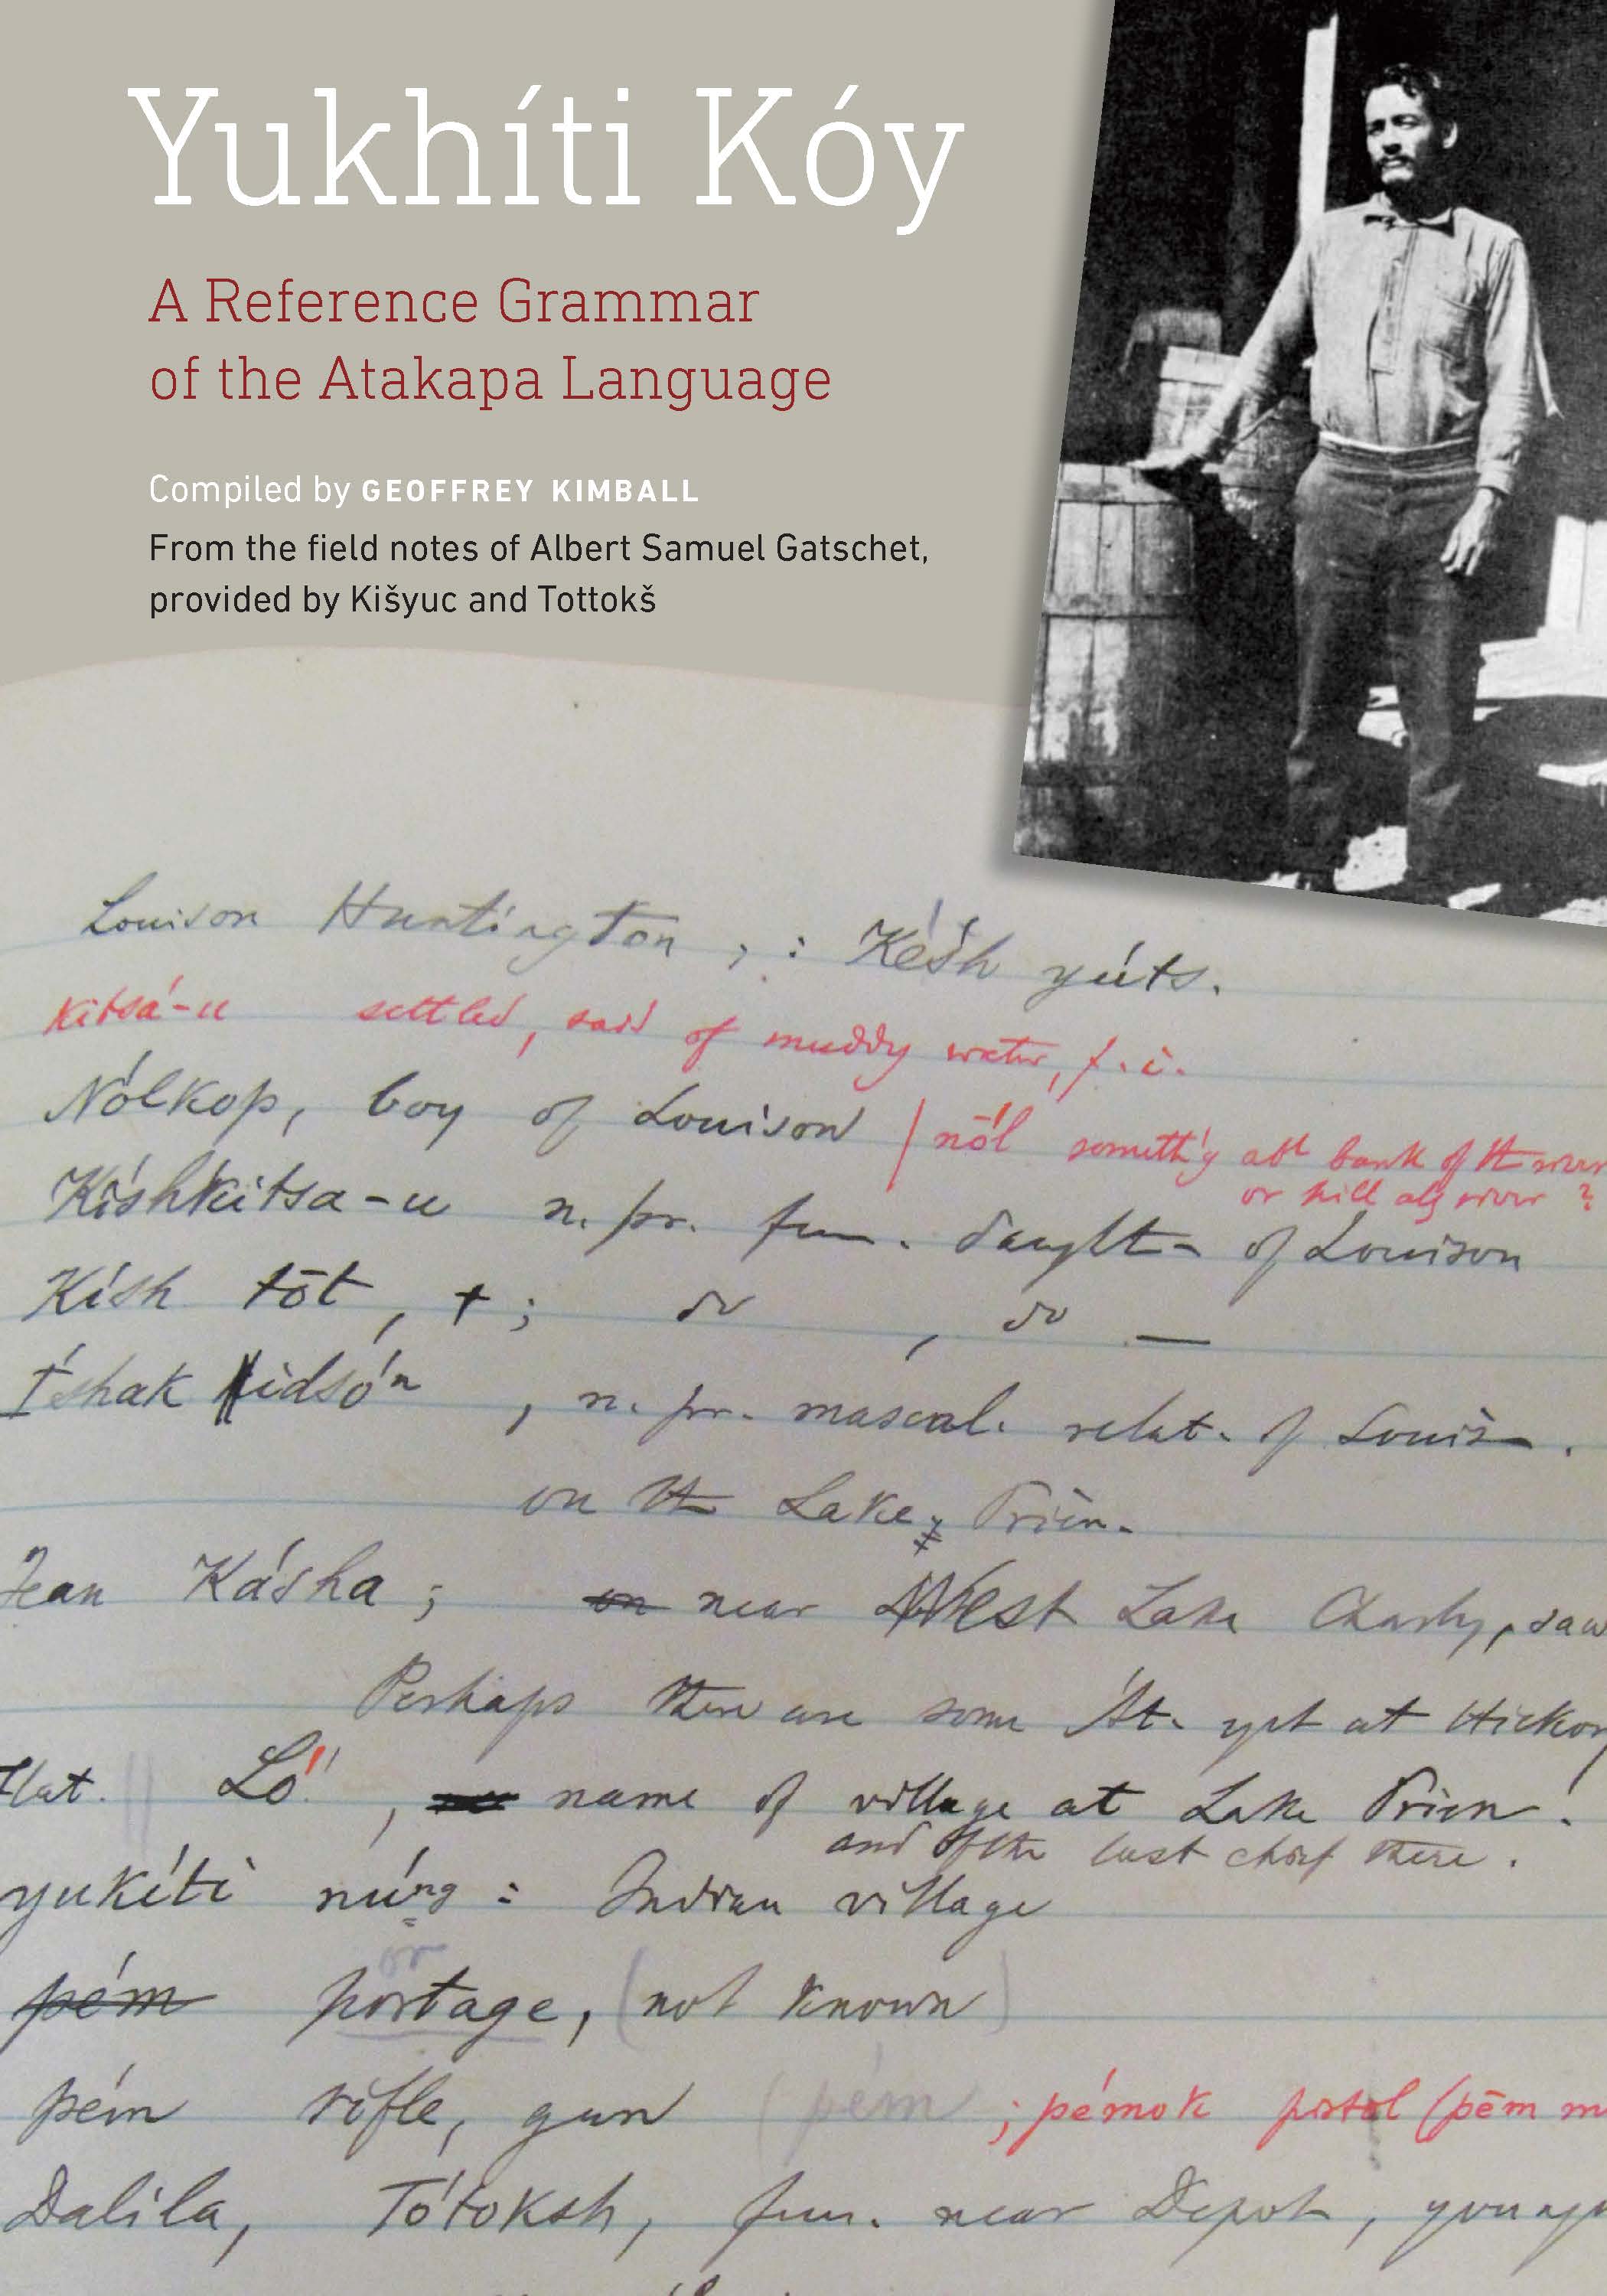 Yukhíti Kóy
A Reference Grammar
of the Atakapa Language
Compiled by GEOFFREY KIMBALL
From the field notes of Albert Samuel Gatschet,
provided by Kišyuc and Tottokš
Louison Huntington, : Késh yúts.
Kitsá-u settled, said of muddy water, f.i.
Nólkop, boy of Louison / nō'l someth'g abt bank of tt river
or hill alg river ?
Kíshkitsa-u n. pr. fem. daught- of Louison
Kísh tōt, +; do, do —
Íshak, n. pr. mascul. relat. of Louis.
on tt Lake Prien.
Jean Kásha; on near West Lake Charley, saw
Perhaps there are some At. yet at Hickory
flat. Lō', name of village at Lake Prien.
and of the last chief there.
yukíti núng : Indian village
pém or portage, (not known)
pém rifle, gun (pém ; pémok pistol (pēm m
Dalila, Tótoksh, fem. near Depot, young